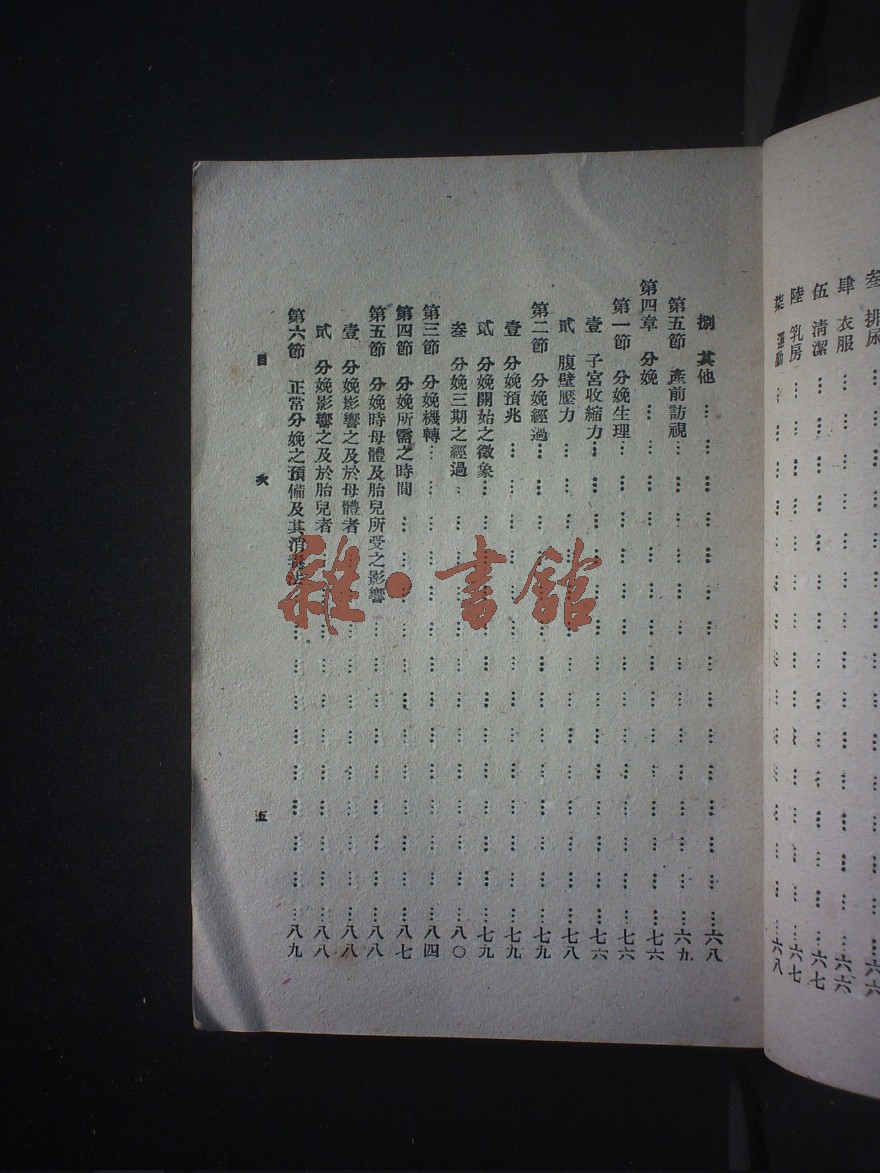 叁 排尿……六六
肆 衣服……六六
伍 清潔……六七
陸 乳房……六七
柒 運動……六八
捌 其他……六八
第五節 產前訪視……六九
第四章 分娩……七六
第一節 分娩生理……七六
壹 子宮收縮力……七六
貳 腹壁壓力……七八
第二節 分娩經過……七九
壹 分娩預兆……七九
貳 分娩開始之徵象……七九
叁 分娩三期之經過……八〇
第三節 分娩機轉……八四
第四節 分娩所需之時間……八七
第五節 分娩時母體及胎兒所受之影響……八八
壹 分娩影響之及於母體者……八八
貳 分娩影響之及於胎兒者……八八
第六節 正常分娩之預備及其消毒法……八九
目次 五
雜·書館